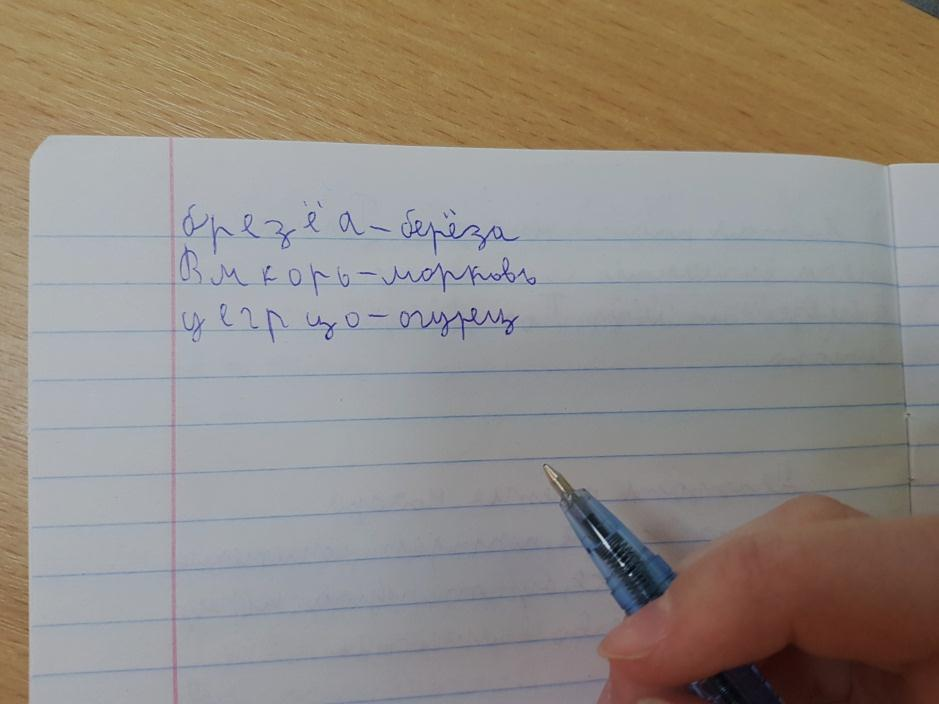 брезёа-берёза
Вмкорь-морковь
уегрцо-огурец